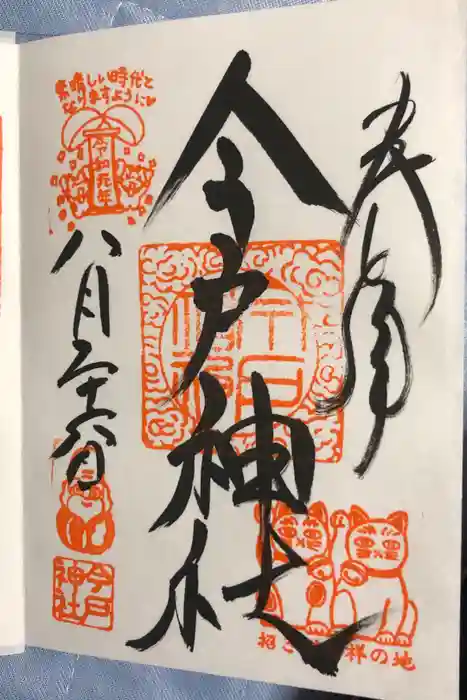 奉拝
今戸神社
素晴しい時代と
なりますように♥
令和元年
八月二十六日
今戸
神社
招き 祥の地